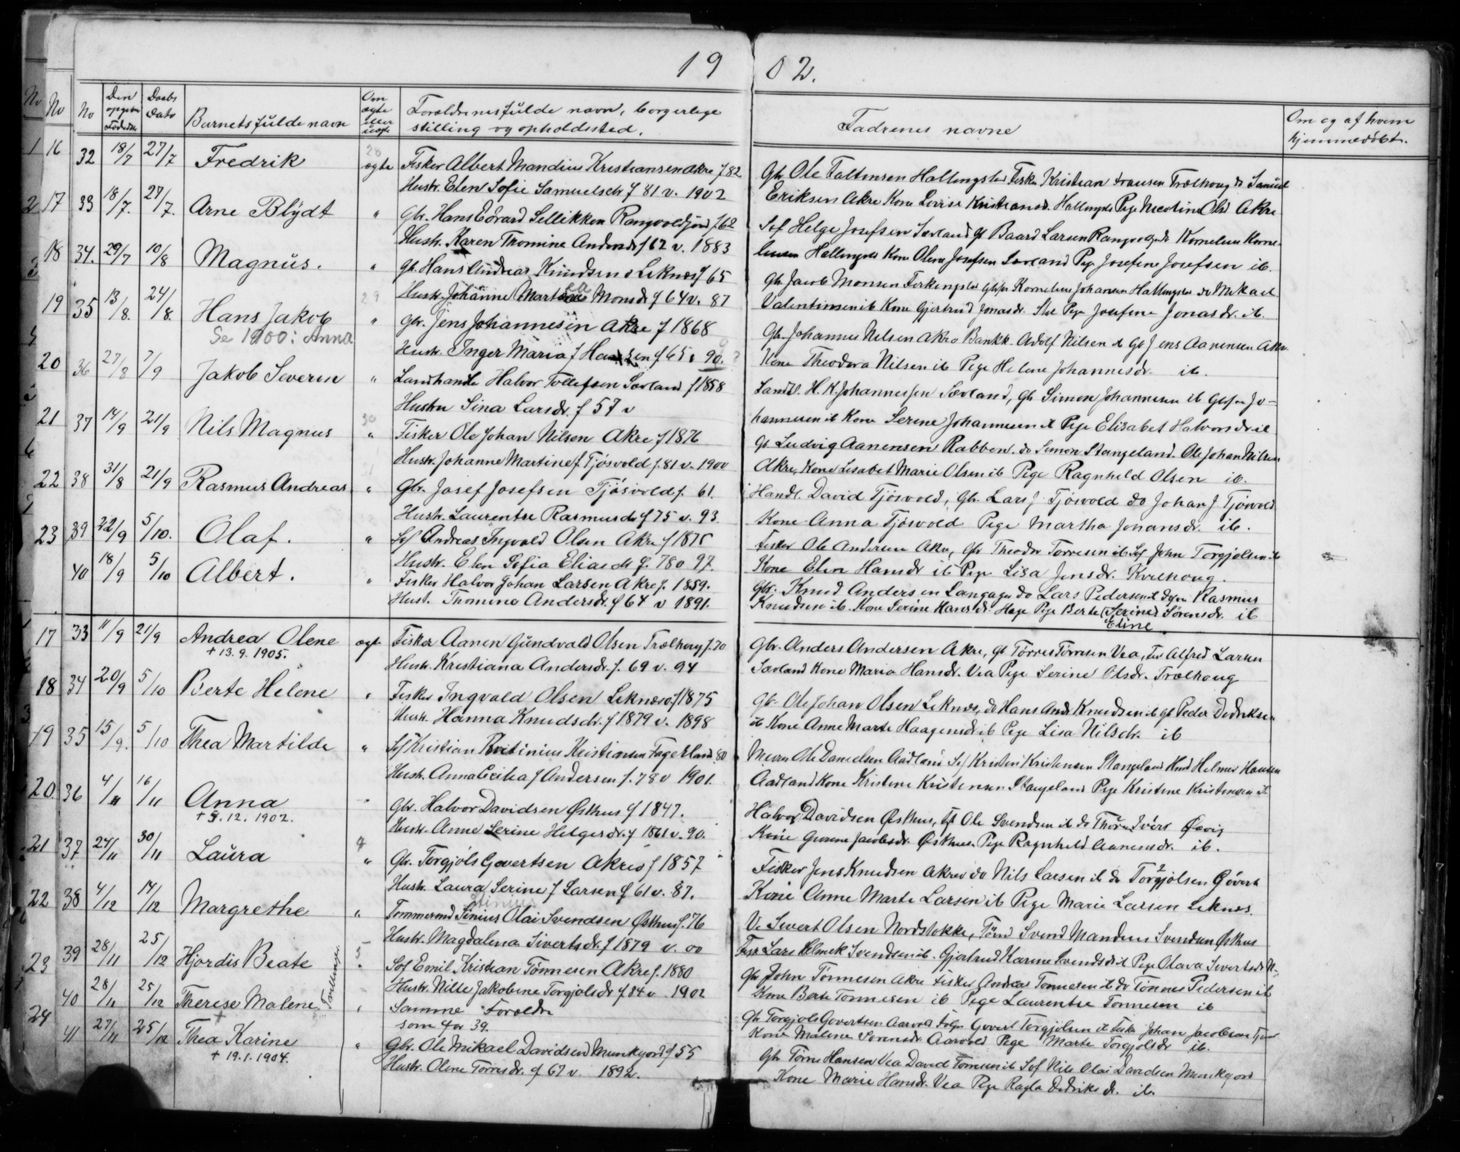 19 02.
No No No Den opgivne Fødsels Daabs Dato Barnets fulde navn Om ægte eller uægte Forældrenes fulde navn, borgerlige stilling og opholdssted. Fadrenes navne Om og af hvem hjemmedøbt.
16 32 18/7 27/7 Fredrik ægte Fisker Albert Mandius Kristiansen Akre f 82
Hustr. Elen Sofie Samuelsdr f 81 v. 1902
Gbr Ole Faltinsen Hallingstad Fisker Kristian Fransen Trælhoug do Samuel
Eriksen Akre Kone Lovise Kristiansdr. Hallingstd Pige Nicoline Olsd Akre
17 33 18/7. 27/7. Arne Blydt " Gbr. Hans Edvard Sellikken Rangvoldsjord f 62
Hustr. Karen Tromine Andersdr f 62 v. 1883
Sef Helge Josefsen Sævland Gb Baard Larsen Rangvoldsjd Kornelius Korne-
liusen Hallingstd Kone Oline Josefsen Sævland Pig Josefine Josefsen ib.
18 34. 29/7 10/8 Magnus. " Gb. Hans Andreas Knudsen Leknes f 65
Hustr. Johanne Marthea Monsdr f 64 v. 87
Gbr Jacob Monsen Ferkingstd Gbfor Kornelius Johannesen Hallingstd do Mikael
Valentinsen ib Kone Gjertrud Jonasdr. Pige Josefine Jonasdr. ib.
19 35 13/8. 24/8. Hans Jakob " Gbr. Jens Johannesen Akre f 1868
Se 1900: Anna
Hustr. Inger Maria f Hansen f 65 v 90.
Gbr Johannes Nilsen Akre Bankk. Adolf Nilsen ib Gb Jens Aanensen Akre
Kone Theodora Nilsen ib Pige Helene Johannesdr. ib.
20 36 27/8 7/9 Jakob Severin " Landhandl. Halvor Tollefsen Sævland f 1858
Hustru Sina Larsdr. f 57 v
Landh. H. H. Johannessen Sævland, Gb Simon Johannesen ib Gbfor Jo-
hannesen ib Kone Serene Johannesen ib Pige Elisabet Halvorsdr ib
21 37 14/9 21/9 Nils Magnus " Fisker Ole Johan Nilsen Akre f 1876
Hustr. Johanne Martine f Tjøsvold f. 81 v. 1900
Gb Ludvig Aanensen Rabben. do Simon Stangeland. Ole Johan Nilsen
Akre, Kone Lisabet Marie Olsen ib Pige Ragnhild Olsen ib.
22 38 31/8 21/9 Rasmus Andreas " Gbr. Josef Josefsen Tjøsvold f. 61.
Hustr. Laurentse Rasmusdr f 75 v. 93.
Handl. David Tjøsvold, Gbr Lars J Tjøsvold do Johan J Tjøsvold
Kone Anna Tjøsvold Pige Martha Johansdr. ib.
23 39 22/9 5/10. Olaf. " Sef Andreas Ingvald Olsen Akre f 1875
Hustr. Elen Sofia Eliasdr f. 78 v 97.
Fisker Ole Andersen Akre, Gbr Theodor Torresen ib Sef John Torgjølsen ib
Kone Elen Hansdr ib Pige Lisa Jensdr. Kvilhoug.
40 18/9 5/10 Albert. " Fisker Halvor Johan Larsen Akre f. 1859.
Hust. Tromine Andersdr. f 64 v 1891.
Gbr. Knud Andersen Langager do Lars Pedersen ib Rasmus
Knudsen ib Kone Serine Hansdr. Hage Pige Berte (Serine) Sørensdr. ib
Eline
17 33 11/9 21/9 Andrea Olene ægt Fisker Aanen Gundvald Olsen Trælhoug f. 70
+ 13.9.1905.
Hustr. Kristiana Andersdr f. 69 v. 94
Gbr. Anders Andersen Akre, Gb Torres Tørresen Vea, Alfred Larsen
Sævland Kone Maria Hansdr. Vea Pige Serine Olsdr. Trælhoug
18 34 20/9 5/10 Berte Helene " Fisker Ingvald Olsen Leknes f 1875
Hustr. Hanna Knudsdr. f 1879 v. 1898
Gb. Ole Johan Olsen Leknes, do Hans Andr. Knudsen ib Gb Peder Didriksen
ib Kone Anne Marte Haagensdr ib Pige Lisa Nilsdr. ib
19 35 15/9. 5/10 Thea Martilde " Sef Kristian Kristiansen Fageland 80
Hustr. Anna Cecilia f Andersen f. 78 v 1901.
Murer Ole Danielsen Aadland Sef Kristen Kristensen Stangeland Helmer Hansen
Aadland Kone Kristine Kristensen Stangeland Pige Kristine Kristensen ib
20 36 4/11 16/11 Anna " Gbr. Halvor Davidsen Østhus f 1847.
+ 9.12.1902.
Hustr. Anne Serine Helgesdr. f 1861 v. 90.
Halvor Davidsen Østhus, Gb Ole Svendsen ib do Thore Ivers Øvig
Kone Jacobsdr. Østhus. Pige Ragnhild Aanensdr. ib.
21 37 24/11 30/11 Laura " Gbr. Torgjøls Govertsen Akre f 1857
Hustr. Laura Serine f Larsen f 61 v. 87.
Fisker Jens Knudsen Akre do Nils Larsen ib do Torgjølsen Govert
Kone Anne Marte Larsen ib Pige Marie Larsen Leknes.
22 38 4/12 14/12 Margrethe " Tømmermd Tønius Olai Svendsen Østhus f. 76
Hustr. Magdalena Sivertsdr. f 1879 v. 00
Sivert Olsen Nordstokke, Tømd Svend Mandius Svendsen Østhus
Lars Elnæk Svendsen ib. Gjertrud Karine Svendsdr ib Pige Olava Sivertsdr N-
23 39 28/11 25/12 Hjordis Beate Tvillinger " Sef Emil Kristian Tønnesen Akre f. 1880
Hustr. Nille Jakobine Torgjølsdr f 84 v. 1902
Gbr John Tønnesen Akre Fisker Andreas Tønnesen ib do Tønnes Pedersen ib
Kone Berte Tønnesen ib Pige Laurentse Tønnesen ib
40 28/11 25/12 Therese Malene " Samme Forældre
+
som for 39.
Gbr Torgjøls Govertsen Aarvold Govert Torgjølsen ib Fisk Johan Jacobsen
Kone Maline Sørensdr. Aarvold Pige Marte Torgjølsdr ib.
24 41 27/11 25/12 Thea Karine " Gbr. Ole Mikael Davidsen Munkejord f 55
+ 19.1.1904.
Hustr. Olene Torresdr. f 67 v. 1892.
Gbr Tørres Hansen Vea David Tønnesen ib Sef Nils Olai Davidsen Munkejord
Kone Marie Hansdr. Vea Pige Ragla Didriksdr. ib.